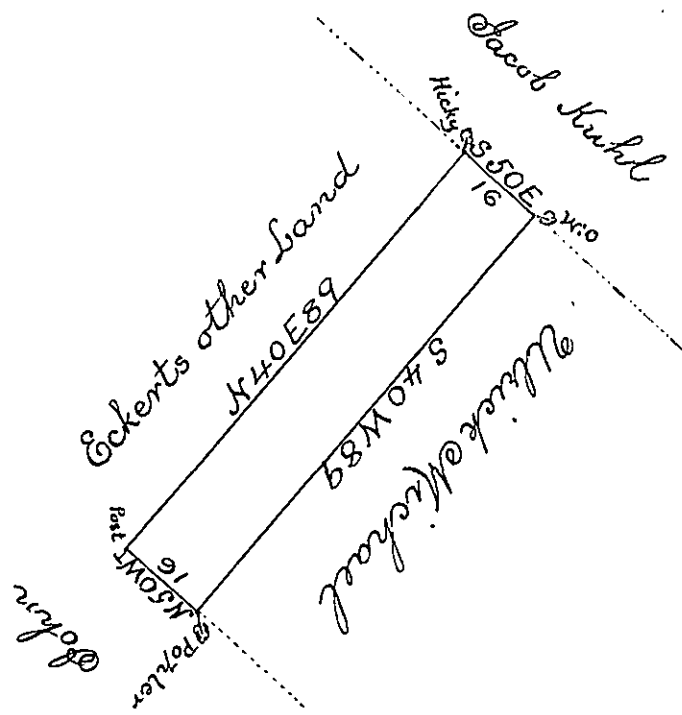 Jacob Kuhl
Hicky
S50E
16
W.O
Eckerts other Land
N40E89
S40W89
Ulrick Michael
Post
N50W
16
Popler
John